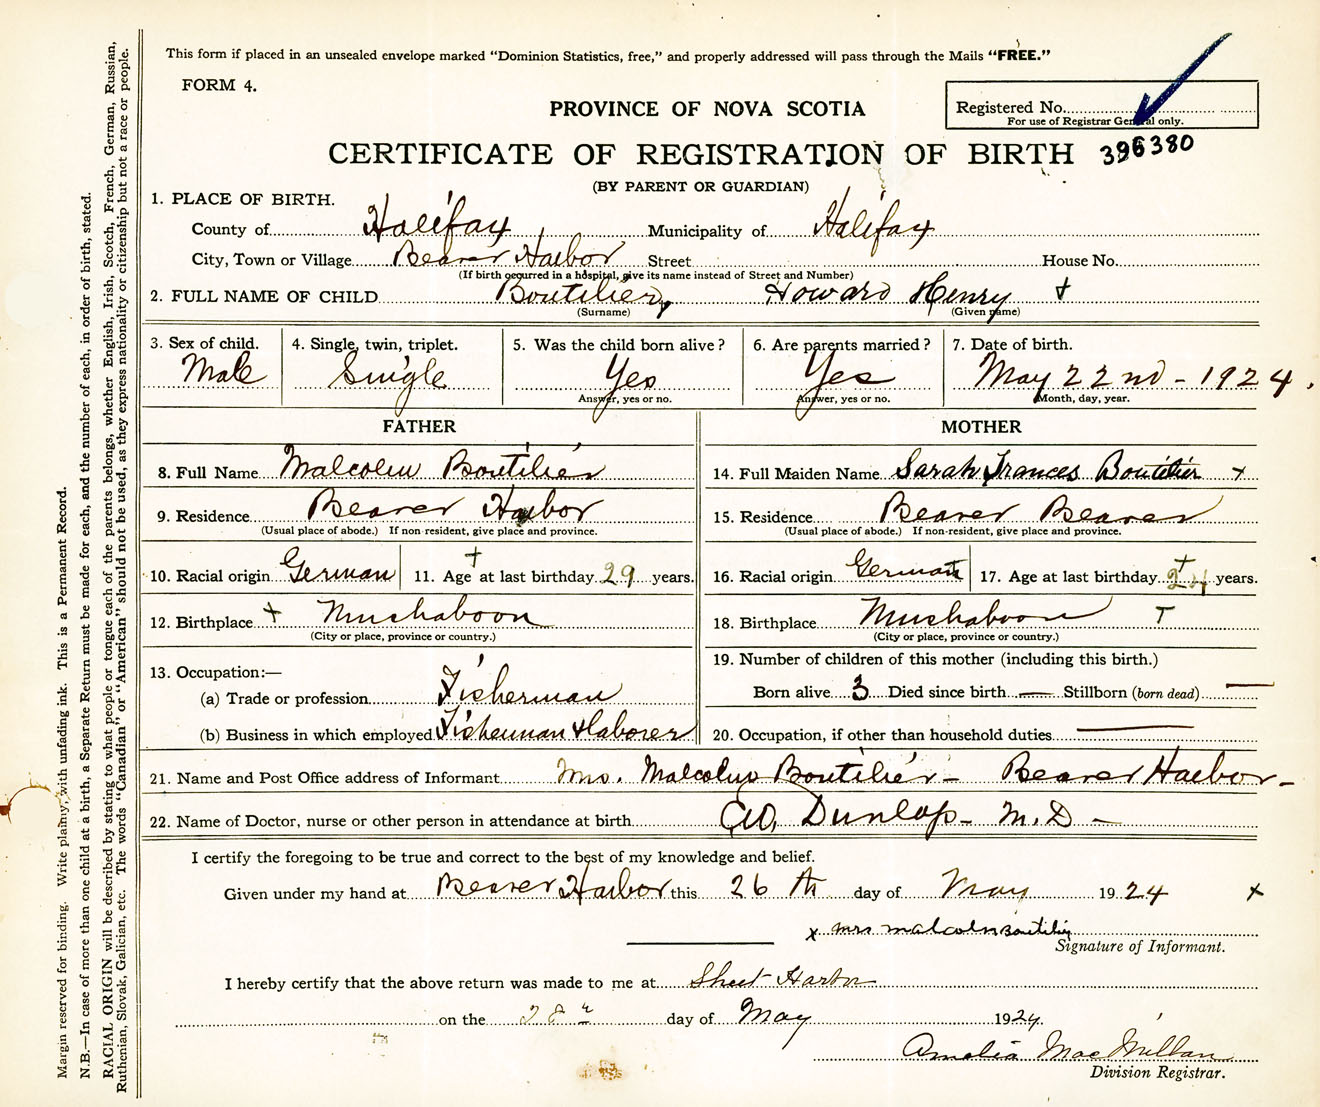 This form if placed in an unsealed envelope marked "Dominion Statistics, free," and properly addressed will pass through the Mails "FREE."
FORM 4.
PROVINCE OF NOVA SCOTIA
Registered No.
For use of Registrar General only.
CERTIFICATE OF REGISTRATION OF BIRTH 396380
(BY PARENT OR GUARDIAN)
1. PLACE OF BIRTH.
County of Halifax Municipality of Halifax
City, Town or Village Beaver Harbor Street House No.
(If birth occurred in a hospital, give its name instead of Street and Number)
2. FULL NAME OF CHILD Boutilier, Howard Henry +
(Surname) (Given name)
3. Sex of child. 4. Single, twin, triplet. 5. Was the child born alive? 6. Are parents married? 7. Date of birth.
Male Single Yes Yes May 22nd - 1924.
Answer, yes or no. Answer, yes or no. Month, day, year.
FATHER MOTHER
8. Full Name Malcolm Boutilier 14. Full Maiden Name Sarah Frances Boutilier x
9. Residence Beaver Harbor 15. Residence Beaver Beaver
(Usual place of abode.) If non-resident, give place and province. (Usual place of abode.) If non-resident, give place and province.
10. Racial origin German 11. Age + at last birthday 29 years. 16. Racial origin German 17. Age at last birthday + 24 years.
12. Birthplace + Mushaboon 18. Birthplace Mushaboon +
(City or place, province or country.) (City or place, province or country.)
13. Occupation:— 19. Number of children of this mother (including this birth.)
(a) Trade or profession Fisherman Born alive 3 Died since birth — Stillborn (born dead) —
(b) Business in which employed Fisherman & laborer 20. Occupation, if other than household duties —
21. Name and Post Office address of Informant Mrs. Malcolm Boutilier - Beaver Harbor -
22. Name of Doctor, nurse or other person in attendance at birth Dunlop - M.D -
I certify the foregoing to be true and correct to the best of my knowledge and belief.
Given under my hand at Beaver Harbor this 26 th day of May 1924 x
x mrs malcolm Boutilier
Signature of Informant.
I hereby certify that the above return was made to me at Sheet Harbor
on the 28 th day of May 1924.
Amelia MacMillan
Division Registrar.
Margin reserved for binding. Write plainly, with unfading ink. This is a Permanent Record.
N.B.—In case of more than one child at a birth, a Separate Return must be made for each, and the number of each, in order of birth, stated.
RACIAL ORIGIN will be described by stating to what people or tongue each of the parents belongs, whether English, Irish, Scotch, French, German, Russian,
Ruthenian, Slovak, Galician, etc. The words "Canadian" or "American" should not be used, as they express nationality or citizenship but not a race or people.